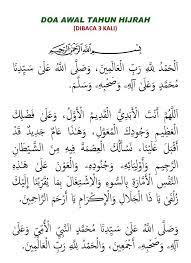 DOA AWAL TAHUN HIJRAH
(DIBACA 3 KALI)
بِسْمِ اللهِ الرَّحْمٰنِ الرَّحِيْمِ
الْحَمْدُ لِلَّهِ رَبِّ الْعَالَمِينَ، وَصَلَّى اللهُ عَلَى سَيِّدِنَا
مُحَمَّدٍ وَعَلَى آلِهِ، وَصَحْبِهِ، وَسَلَّمَ.
اللَّهُمَّ أَنْتَ الْأَبَدِيُّ الْقَدِيمُ الْأَوَّلُ، وَعَلَى فَضْلِكَ
الْعَظِيمِ وَجُودِكَ الْمُعَوَّلِ، وَهَذَا عَامٌ جَدِيدٌ قَدْ
أَقْبَلَ عَلَيْنَا، نَسْأَلُكَ الْعِصْمَةَ فِيهِ مِنَ الشَّيْطَانِ
الرَّجِيمِ وَأَوْلِيَائِهِ، وَجُنُودِهِ، وَالْعَوْنَ عَلَى هَذِهِ
النَّفْسِ الْأَمَّارَةِ بِالسُّوءِ وَالِاشْتِغَالَ بِمَا يُقَرِّبُنَا إِلَيْكَ
زُلْفَى يَا ذَا الْجَلَالِ وَالْإِكْرَامِ يَا أَرْحَمَ الرَّاحِمِينَ.
وَصَلَّى اللهُ عَلَى سَيِّدِنَا مُحَمَّدٍ النَّبِيِّ الْأُمِّيِّ وَعَلَى
آلِهِ، وَصَحْبِهِ، أَجْمَعِينَ، وَالْحَمْدُ لِلَّهِ رَبِّ الْعَالَمِينَ.